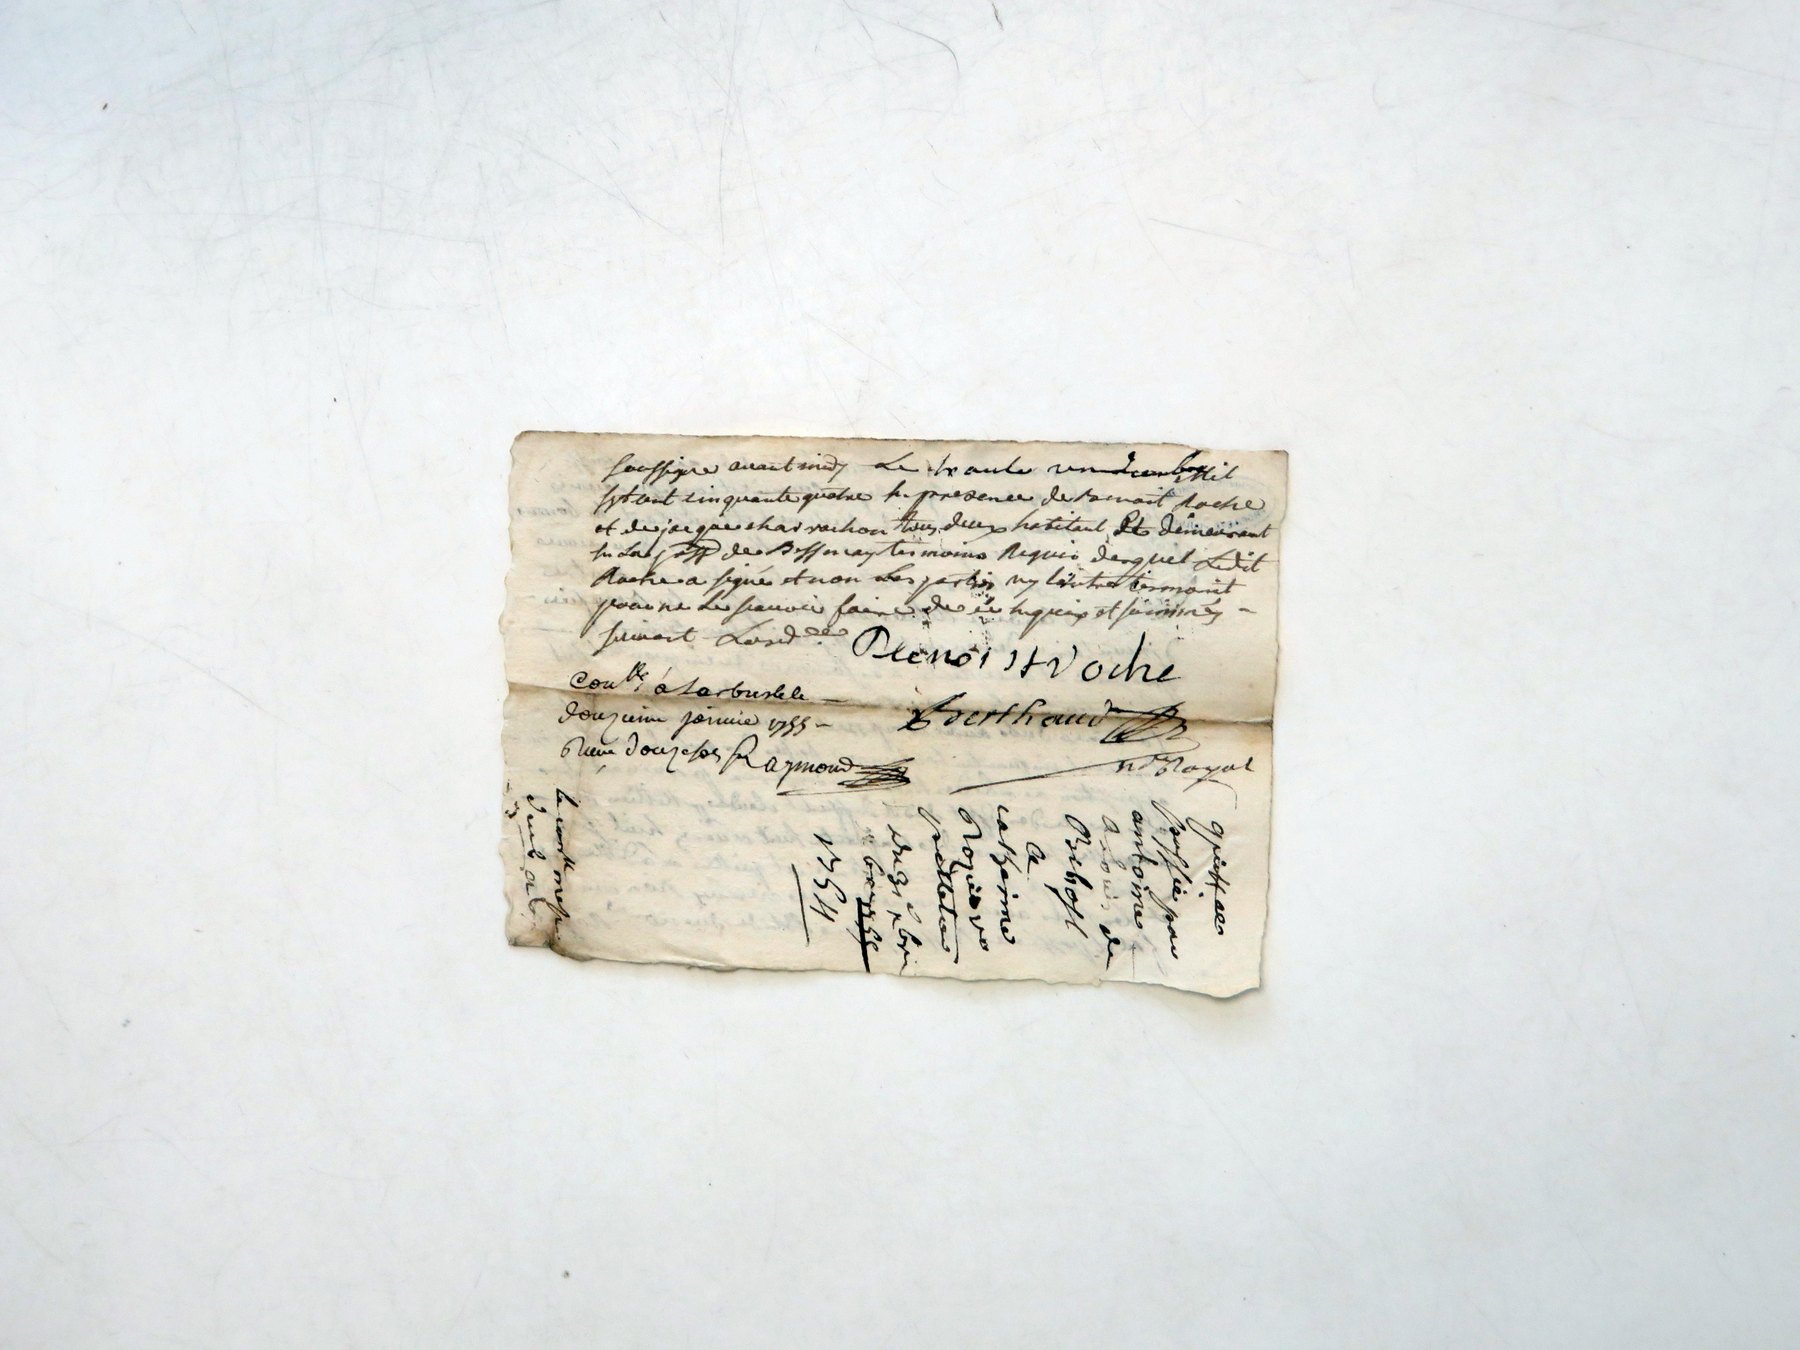 soussigne avant midy Le trante un decembre Mil
sept cent cinquante quatre En presence de Benoit Roche
et de jacque charrachon tous deux habitant Et demeurant
En La de Bessenay temoins Requis desquel Ledit
Roche a signé et non Les parties ny l'autre temoint
pour ne Le scavoir faire de ce Enquis et sommés
suivant Lord.ce
Benoist Roche
Con.llé a Larbresle le
douzieme janvier 1755
Recu douze sols Raymond
Berthaud
n.re Royal
quittance
passée par
antoine
a de
Bibost
a
catherine
pelletier
du 31 xbre
1754
le